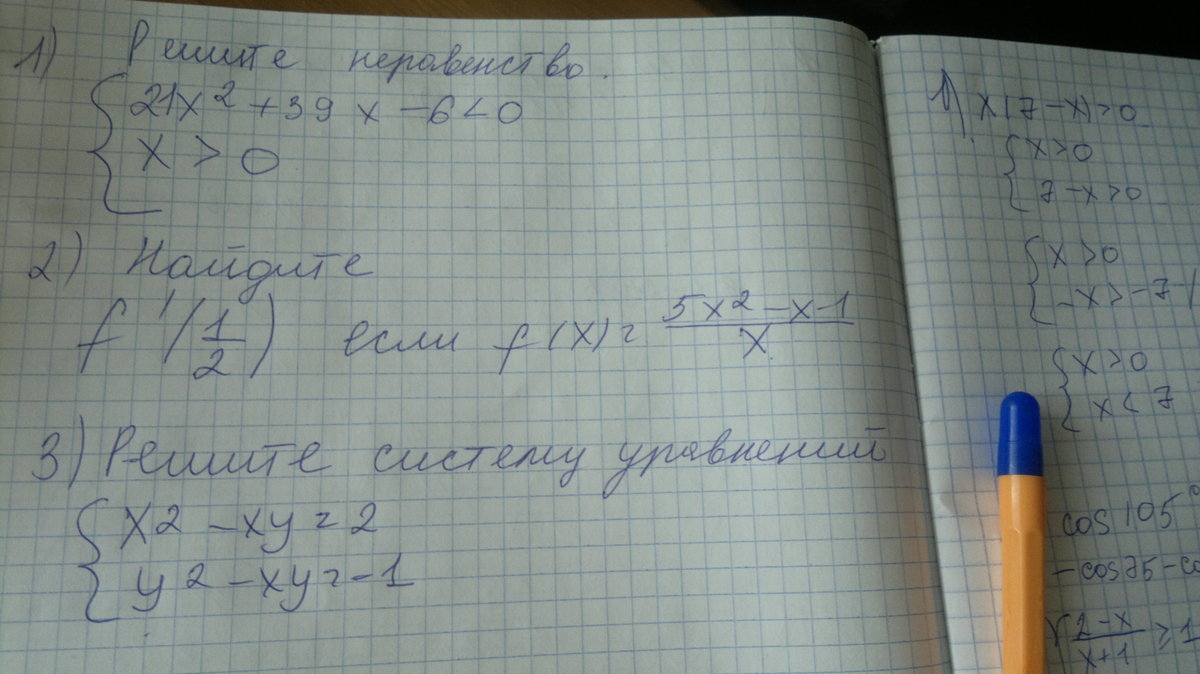 1) Решите неравенство.
21x² + 39x - 6 < 0
x > 0
2) Найдите
f'(1/2) если f(x) = (5x² - x - 1)/x
3) Решите систему уравнений
x2 - xy = 2
y2 - xy = -1
1) x(7-x) > 0
x > 0
7-x > 0
x > 0
-x > -7
x > 0
x < 7
cos 105°
-cos75-co
(2-x)/(x+1) ≥ 1